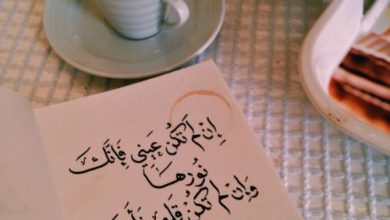 إِنْ لَمْ تَكُنْ عَيْنِي فَإِنَّكَ
نُورُهَا
وَإِنْ لَمْ تَكُنْ